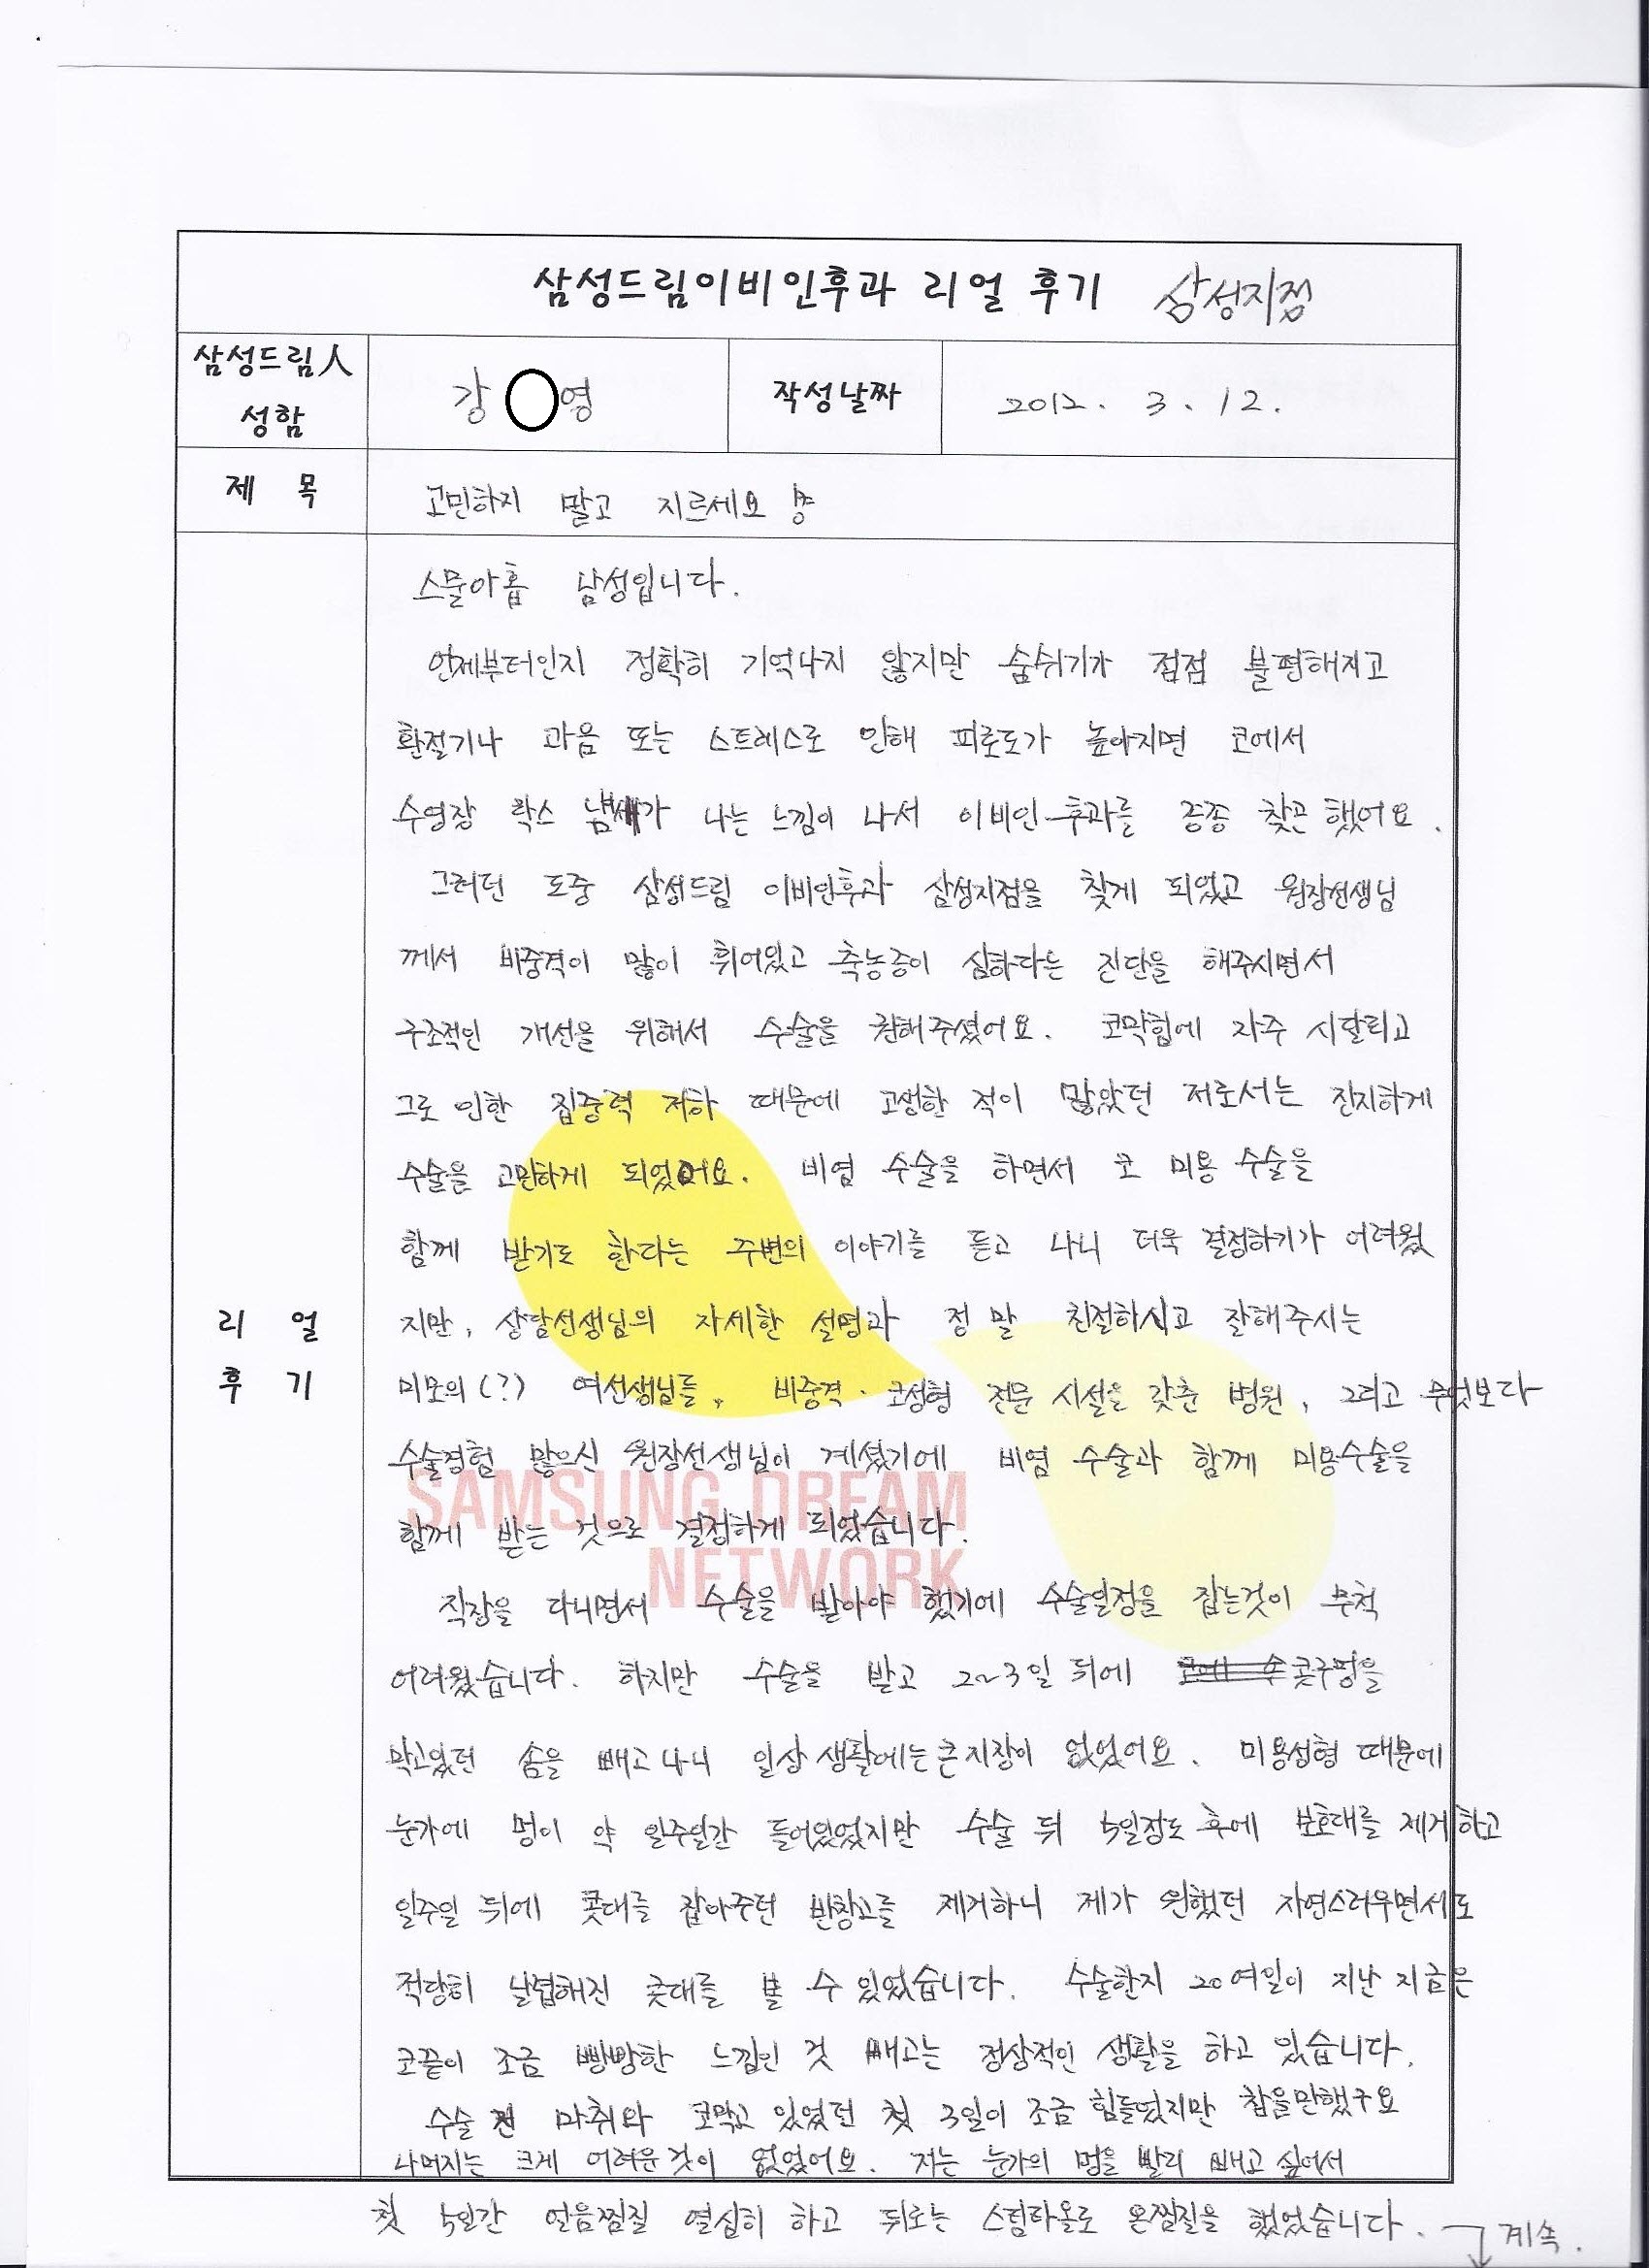 삼성드림이비인후과 리얼 후기 삼성지점
삼성드림人 성함
강 영
작성날짜
2012. 3. 12.
제 목
고민하지 말고 지르세요
스물아홉 남성입니다.
언제부터인지 정확히 기억나지 않지만 숨쉬기가 점점 불편해지고
환절기나 과음 또는 스트레스로 인해 피로도가 높아지면 코에서
수영장 락스 냄새가 나는 느낌이 나서 이비인후과를 종종 찾곤 했어요.
그러던 도중 삼성드림 이비인후과 삼성지점을 찾게 되었고 원장선생님
께서 비중격이 많이 휘어있고 축농증이 심하다는 진단을 해주시면서
구조적인 개선을 위해서 수술을 권해주셨어요. 코막힘에 자주 시달리고
그로 인한 집중력 저하 때문에 고생한 적이 많았던 저로서는 진지하게
수술을 고민하게 되었어요. 비염 수술을 하면서 코 미용 수술을
함께 받기도 한다는 주변의 이야기를 듣고 나니 더욱 결정하기가 어려웠
리 얼
후 기
지만, 상담선생님의 자세한 설명과 정말 친절하시고 잘해주시는
미모의(?) 여선생님들, 비중격·코성형 전문 시설을 갖춘 병원, 그리고 무엇보다
수술경험 많으신 원장선생님이 계셨기에 비염 수술과 함께 미용수술을
함께 받는 것으로 결정하게 되었습니다.
SAMSUNG DREAM
NETWORK
직장을 다니면서 수술을 받아야 했기에 수술일정을 잡는것이 무척
어려웠습니다. 하지만 수술을 받고 2~3일 뒤에 콧구멍을
막고있던 솜을 빼고 나니 일상생활에는 큰 지장이 없었어요. 미용성형 때문에
눈가에 멍이 약 일주일간 들어있었지만 수술 뒤 5일정도 후에 보호대를 제거하고
일주일 뒤에 콧대를 잡아주던 반창고를 제거하니 제가 원했던 자연스러우면서도
적당히 날렵해진 콧대를 볼 수 있었습니다. 수술한지 20여일이 지난 지금은
코끝이 조금 빵빵한 느낌인 것 빼고는 정상적인 생활을 하고 있습니다.
수술 전 마취와 코막고 있었던 첫 3일이 조금 힘들었지만 참을만했구요
나머지는 크게 어려운것이 없었어요. 저는 눈가의 멍을 빨리 빼고 싶어서
첫 5일간 얼음찜질 열심히 하고 뒤로는 스팀타올로 온찜질을 했었습니다. 계속.